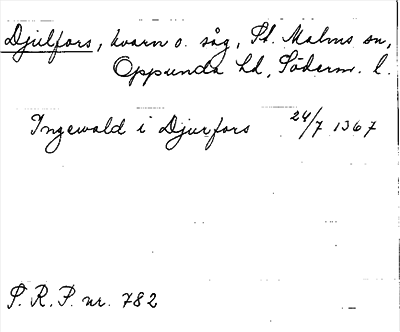 Djulfors, kvarn o. såg, St. Malms sn,
Oppunda hd, Söderm. l.
Ingewald i Djurfors 24/7 1367
S. R. P. nr. 782